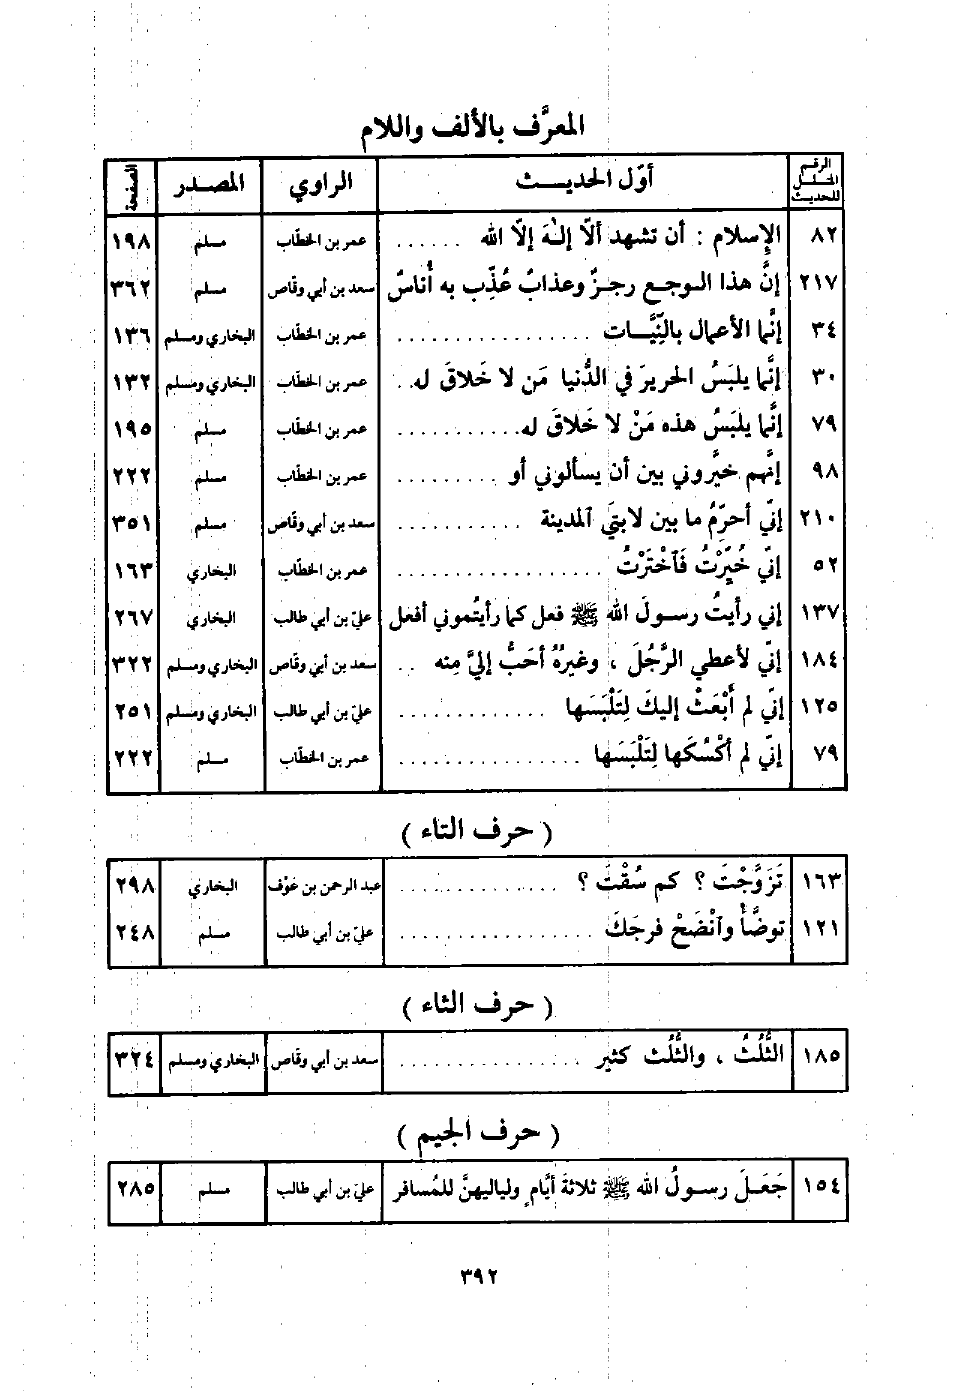 المعرَّف بالألف واللام
الرقم المسلسل للحديث | أوّل الحديث | الراوي | المصدر | الصفحة
٨٢ | الإسلام : أن تشهد ألّا إلـٰهَ إلّا الله ...... | عمر بن الخطّاب | مسلم | ١٩٨
٢١٧ | إنَّ هذا الوجع رجزٌ وعذابٌ عُذِّب به أُناسٌ | سعد بن أبي وقاص | مسلم | ٣٦٢
٣٤ | إنَّما الأعمال بالنِّيَّات ................. | عمر بن الخطّاب | البخاري ومسلم | ١٣٦
٣٠ | إنَّما يلبَسُ الحريرَ في الدُّنيا مَن لا خَلاقَ له.. | عمر بن الخطّاب | البخاري ومسلم | ١٣٢
٧٩ | إنَّما يلبَسُ هذه مَنْ لا خَلاقَ له............ | عمر بن الخطّاب | مسلم | ١٩٥
٩٨ | إنَّهم خيَّروني بين أن يسألوني أو ......... | عمر بن الخطّاب | مسلم | ٢٢٢
٢١٠ | إنّي أحرِّمُ ما بين لابتَي ٱلمدينة ........... | سعد بن أبي وقّاص | مسلم | ٣٥١
٥٢ | إنّي خُيِّرْتُ فَٱخْتَرْتُ .................. | عمر بن الخطّاب | البخاري | ١٦٣
١٣٧ | إني رأيتُ رسولَ الله ﷺ فعل كما رأيتُموني أفعل | عليّ بن أبي طالب | البخاري | ٢٦٧
١٨٤ | إنّي لأعطي الرَّجُلَ ، وغيرُهُ أحَبُّ إليَّ مِنه .. | سعد بن أبي وقّاص | البخاري ومسلم | ٣٢٢
١٢٥ | إنّي لم أَبْعَثْ إليكَ لِتَلْبَسَها ............. | عليّ بن أبي طالب | البخاري ومسلم | ٢٥١
٧٩ | إنّي لم أكْسُكَها لِتَلْبَسَها ................ | عمر بن الخطّاب | مسلم | ٢٢٢
( حرف التاء )
١٦٣ | تَزَوَّجْتَ ؟ كم سُقْتَ ؟ .............. | عبد الرحمن بن عَوْف | البخاري | ٢٩٨
١٢١ | توضَّأْ وٱنْضَحْ فرجَكَ ................. | عليّ بن أبي طالب | مسلم | ٢٤٨
( حرف الثاء )
١٨٥ | الثُّلُثُ ، والثُّلُث كثير ................ | سعد بن أبي وقّاص | البخاري ومسلم | ٣٢٤
( حرف الجيم )
١٥٤ | جَعَلَ رسولُ الله ﷺ ثلاثةَ أيَّامٍ ولياليهنَّ للمُسافر | عليّ بن أبي طالب | مسلم | ٢٨٥
٣٩٢